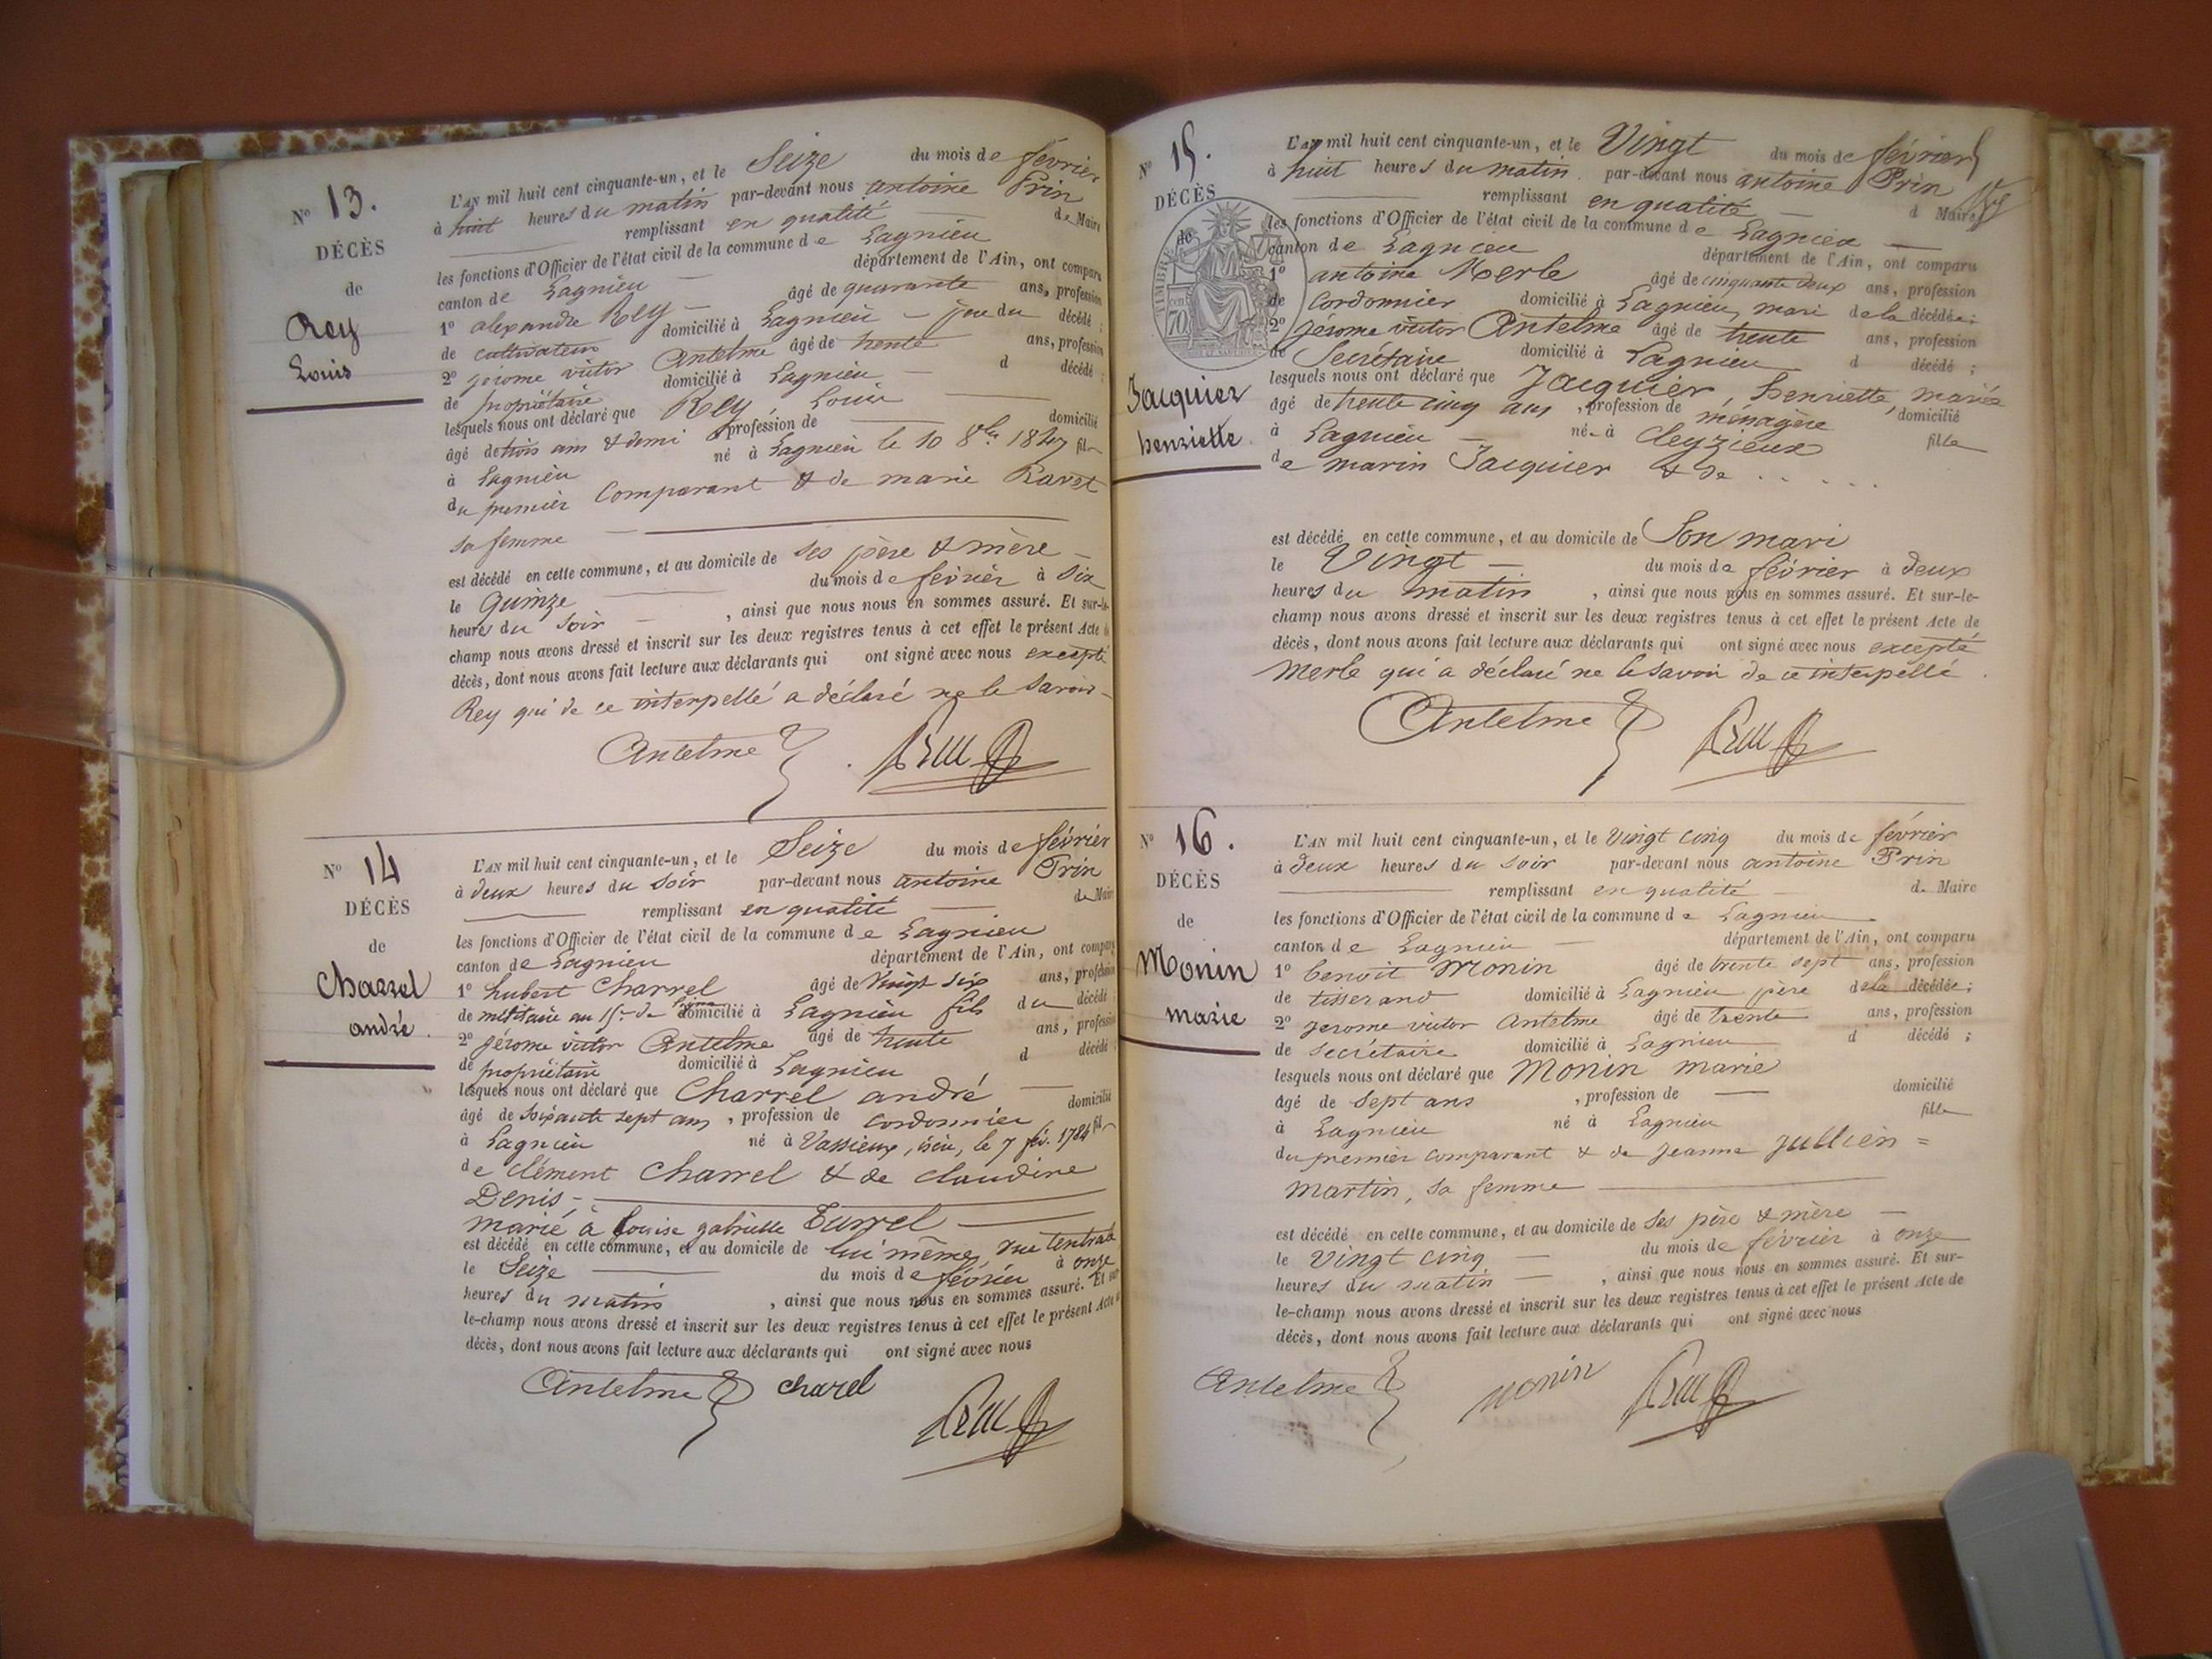 N° 13.
DÉCÈS
de
Rey
Louis
L'AN mil huit cent cinquante-un, et le Seize du mois de février
à huit heures du matin par-devant nous antoine Prin
remplissant en qualité de Maire
les fonctions d'Officier de l'état civil de la commune de Lagnieu
canton de Lagnieu département de l'Ain, ont comparu
1° alexandre Rey âgé de quarante ans, profession
de cultivateur domicilié à Lagnieu père du décédé ;
2° jérome victor Antelme âgé de trente ans, profession
de propriétaire domicilié à Lagnieu d décédé ;
lesquels nous ont déclaré que Rey, Louis
âgé de trois ans & demi profession de domicilié
à Lagnieu né à Lagnieu le 10 8bre 1847 fils
du premier Comparant & de marie Ravet
sa femme
est décédé en cette commune, et au domicile de ses père & mère
le quinze du mois de février à six
heures du soir , ainsi que nous nous en sommes assuré. Et sur-le-
champ nous avons dressé et inscrit sur les deux registres tenus à cet effet le présent Acte de
décès, dont nous avons fait lecture aux déclarants qui ont signé avec nous excepté
Rey qui de ce interpellé a déclaré ne le savoir
Antelme Prin
N° 14
DÉCÈS
de
Charrel
andré.
L'AN mil huit cent cinquante-un, et le Seize du mois de février
à deux heures du soir par-devant nous antoine Prin
remplissant en qualité de Maire
les fonctions d'Officier de l'état civil de la commune de Lagnieu
canton de Lagnieu département de l'Ain, ont comparu
1° hubert Charrel âgé de Vingt six ans, profession
de militaire au 15e de ligne domicilié à Lagnieu fils du décédé
2° jérome victor Antelme âgé de trente ans, profession
de propriétaire domicilié à Lagnieu d décédé
lesquels nous ont déclaré que Charrel andré
âgé de soixante sept ans, profession de cordonnier domicilié
à Lagnieu né à Vassieux, isère, le 7 fév. 1784 fils
de clément Charrel & de claudine
Denis
marié à Louise gabrielle Turrel
est décédé en cette commune, et au domicile de lui même, rue Centrale
le Seize du mois de février à onze
heures du matin , ainsi que nous nous en sommes assuré. Et sur
le-champ nous avons dressé et inscrit sur les deux registres tenus à cet effet le présent Acte de
décès, dont nous avons fait lecture aux déclarants qui ont signé avec nous
Antelme charel
Prin
N° 15.
DÉCÈS
de
TIMBRE
70
Jacquier
henriette.
L'AN mil huit cent cinquante-un, et le Vingt du mois de février
à huit heures du matin par-devant nous antoine Prin
remplissant en qualité d Maire
les fonctions d'Officier de l'état civil de la commune de Lagnieu
canton de Lagnieu département de l'Ain, ont comparu
1° antoine Merle âgé de cinquante deux ans, profession
de cordonnier domicilié à Lagnieu, mari de la décédée ;
2° jérome victor Antelme âgé de trente ans, profession
de Secrétaire domicilié à Lagnieu d décédé ;
lesquels nous ont déclaré que Jacquier, henriette, mariée
âgé de trente cinq ans, profession de ménagère, domicilié
à Lagnieu née à Cleyzieux fille
de marin Jacquier & de . . . . .
est décédé en cette commune, et au domicile de Son mari
le Vingt du mois de février à deux
heures du matin , ainsi que nous nous en sommes assuré. Et sur-le-
champ nous avons dressé et inscrit sur les deux registres tenus à cet effet le présent Acte de
décès, dont nous avons fait lecture aux déclarants qui ont signé avec nous excepté
Merle qui a déclaré ne le savoir de ce interpellé.
Antelme Prin
N° 16.
DÉCÈS
de
Monin
marie
L'AN mil huit cent cinquante-un, et le Vingt cinq du mois de février
à deux heures du soir par-devant nous antoine Prin
remplissant en qualité de Maire
les fonctions d'Officier de l'état civil de la commune de Lagnieu
canton de Lagnieu département de l'Ain, ont comparu
1° benoît Monin âgé de trente sept ans, profession
de tisserand domicilié à Lagnieu père de la décédée ;
2° jerome victor Antelme âgé de trente ans, profession
de secrétaire domicilié à Lagnieu d décédé ;
lesquels nous ont déclaré que Monin marie
âgé de sept ans , profession de domicilié
à Lagnieu né à Lagnieu fille
du premier comparant & de Jeanne Jullien =
Martin, sa femme
est décédé en cette commune, et au domicile de ses père & mère
le Vingt cinq du mois de février à onze
heures du matin , ainsi que nous nous en sommes assuré. Et sur-
le-champ nous avons dressé et inscrit sur les deux registres tenus à cet effet le présent Acte de
décès, dont nous avons fait lecture aux déclarants qui ont signé avec nous
Antelme monin Prin